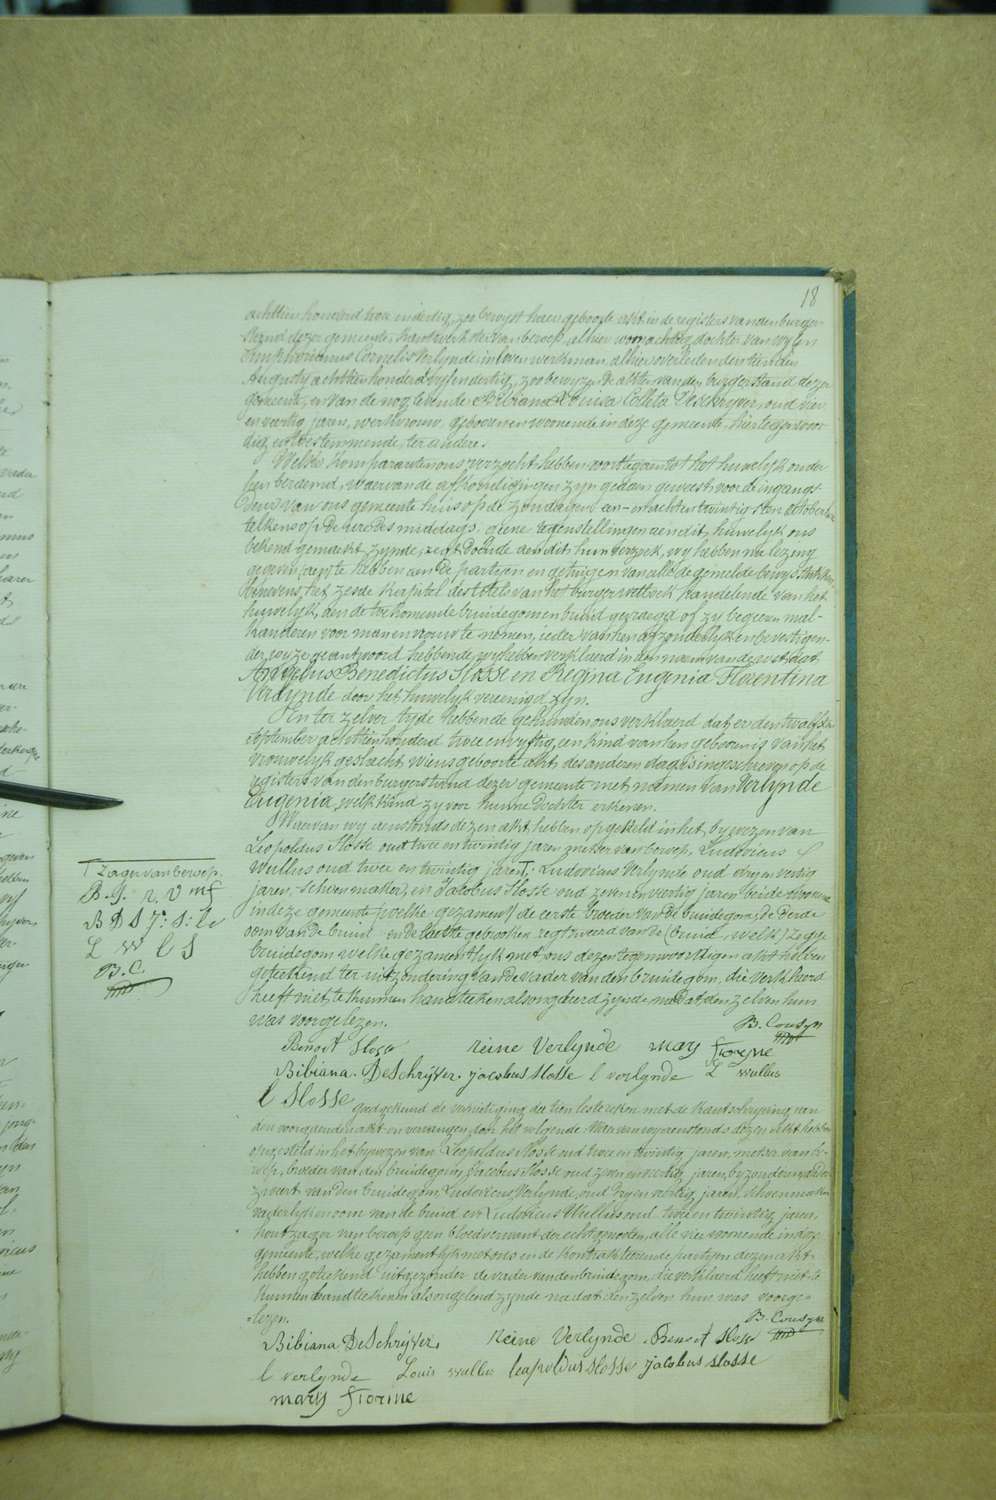 18
achttien honderd twee en dertig, zoo bewyst haere geboorte akt in de registers van den burger-
stand dezer gemeente, kantwerkster van beroep, alhier woonachtig, dochter van wylen
Cornelis Verlynde in leven werkman alhier overleden den
Augusty achttien honderd vyf en dertig, zoo bewyzen de akten van den burgerstand dezer
gemeente, en van de nog levende Bibiana Louisa Colleta Deschryver, oud vier
en veertig jaren, werkvrouw, geboren en wonende in deze gemeente, hier tegenwoor-
dig en toestemmende, ter andere.
Welke komparanten ons verzocht hebben voort te gaan tot het huwelyk onder
hen beraemd, waervan de afkondigingen zyn gedaen geweest voor de ingangs-
deur van ons gemeente huis op de zondagen een- en achten twintigsten october
telkens op de ure des middags. geene tegenstellingen aen dit huwelyk ons
bekend gemaekt zynde, regt doende aen dit hun verzoek, wy hebben na lezing
gegeven te hebben aen de partyen en getuigen van alle de gemelde bewys stukken
benevens het zesde kapitel des titels van het burger wetboek handelende van het
huwelyk, aen de toekomende bruidegom en bruid gevraegd of zy begeeren mal-
kanderen voor man en vrouw te nemen, ieder van hen afzonderlyk en bevestigen-
der wyze geantwoord hebbende, wy hebben verklaerd in den naem van de wet, dat
Angelus Benedictus Slosse en Regina Eugenia Florentina
Verlynde door het huwelyk vereenigd zyn.
En ter zelver tyde hebbende gehuwden ons verklaerd dat er den twaelfsten
September achttien honderd twee en vyftig, een kind van hen geboren is van het
vrouwelyk geslacht wiens geboorte akt des anderen daegs ingeschreven op de
registers van den burgerstand dezer gemeente met namen van Verlynde
Eugenia, welk kind zy voor hunne dochter erkennen.
Waervan wy aenstonds dezen akt hebben opgesteld in het bywezen van
Leopoldus Slosse oud twee en twintig jaren metser van beroep, Ludovicus
Wullus oud twee en twintig jaren T, Ludovicus Verlynde oud dry en veertig
jaren, schoenmaker, en Jacobus Slosse oud zeven en veertig jaren beide wonende
in deze gemeente, welke gezament de eerste broeder van de bruidegom, de derde
oom van de bruid en de laetste gebroken regtzweerd van de (bruid welk) zegge
bruidegom welke gezamentlyk met ons dezen tegenwoordigen akt hebben
geteekend ter uitzondering van de vader van den bruidegom, die verklaerd
heeft niet te kunnen handteeken als ongeleerd zynde nadat den zelven hun
was voorgelezen.
B. Cousyn
Benoot Slosse Reine Verlynde mary florene
Bibiana DeSchryver. jacobus slosse l verlynde L wullus
l Slosse
T Zager van beroep.
B. S. R. V mf
B D S J: S: lv
L W l S
B. C.
goedgekeurd de vernietiging der tien leste reken met de handschryving van
den voorgaenden akt en vervangen door het volgende Waervan wy aenstonds dezen akt hebben
opgesteld in het bywezen van Leopoldus Slosse oud twee en twintig jaren, metser van be-
roep, broeder van den bruidegom, Jacobus Slosse oud zeven en veertig jaren, byzonderen
zweert van den bruidegom Ludovicus Verlynde, oud dry en veertig jaren, schoenmaker
vaderlyken oom van de bruid en Ludovicus Wullus, oud twee en twintig jaren,
houtzager van beroep geen bloedverwant der echtgenooten, alle vier woonende in deze
gemeente, welke gezamentlyk met ons en de kontrakteerende partyen dezen akt
hebben geteekend uitgezonder de vader van den bruidegom, die verklaerd heeft niet te
kunnen handteekenen als ongeleerd zynde nadat den zelven hun was voorge-
lezen.
B. Cousyn
Bibiana DeSchryver, Reine Verlynde Benoot Slosse
l verlynde Louis wullus leopoldus slosse jacobus slosse
mary florene